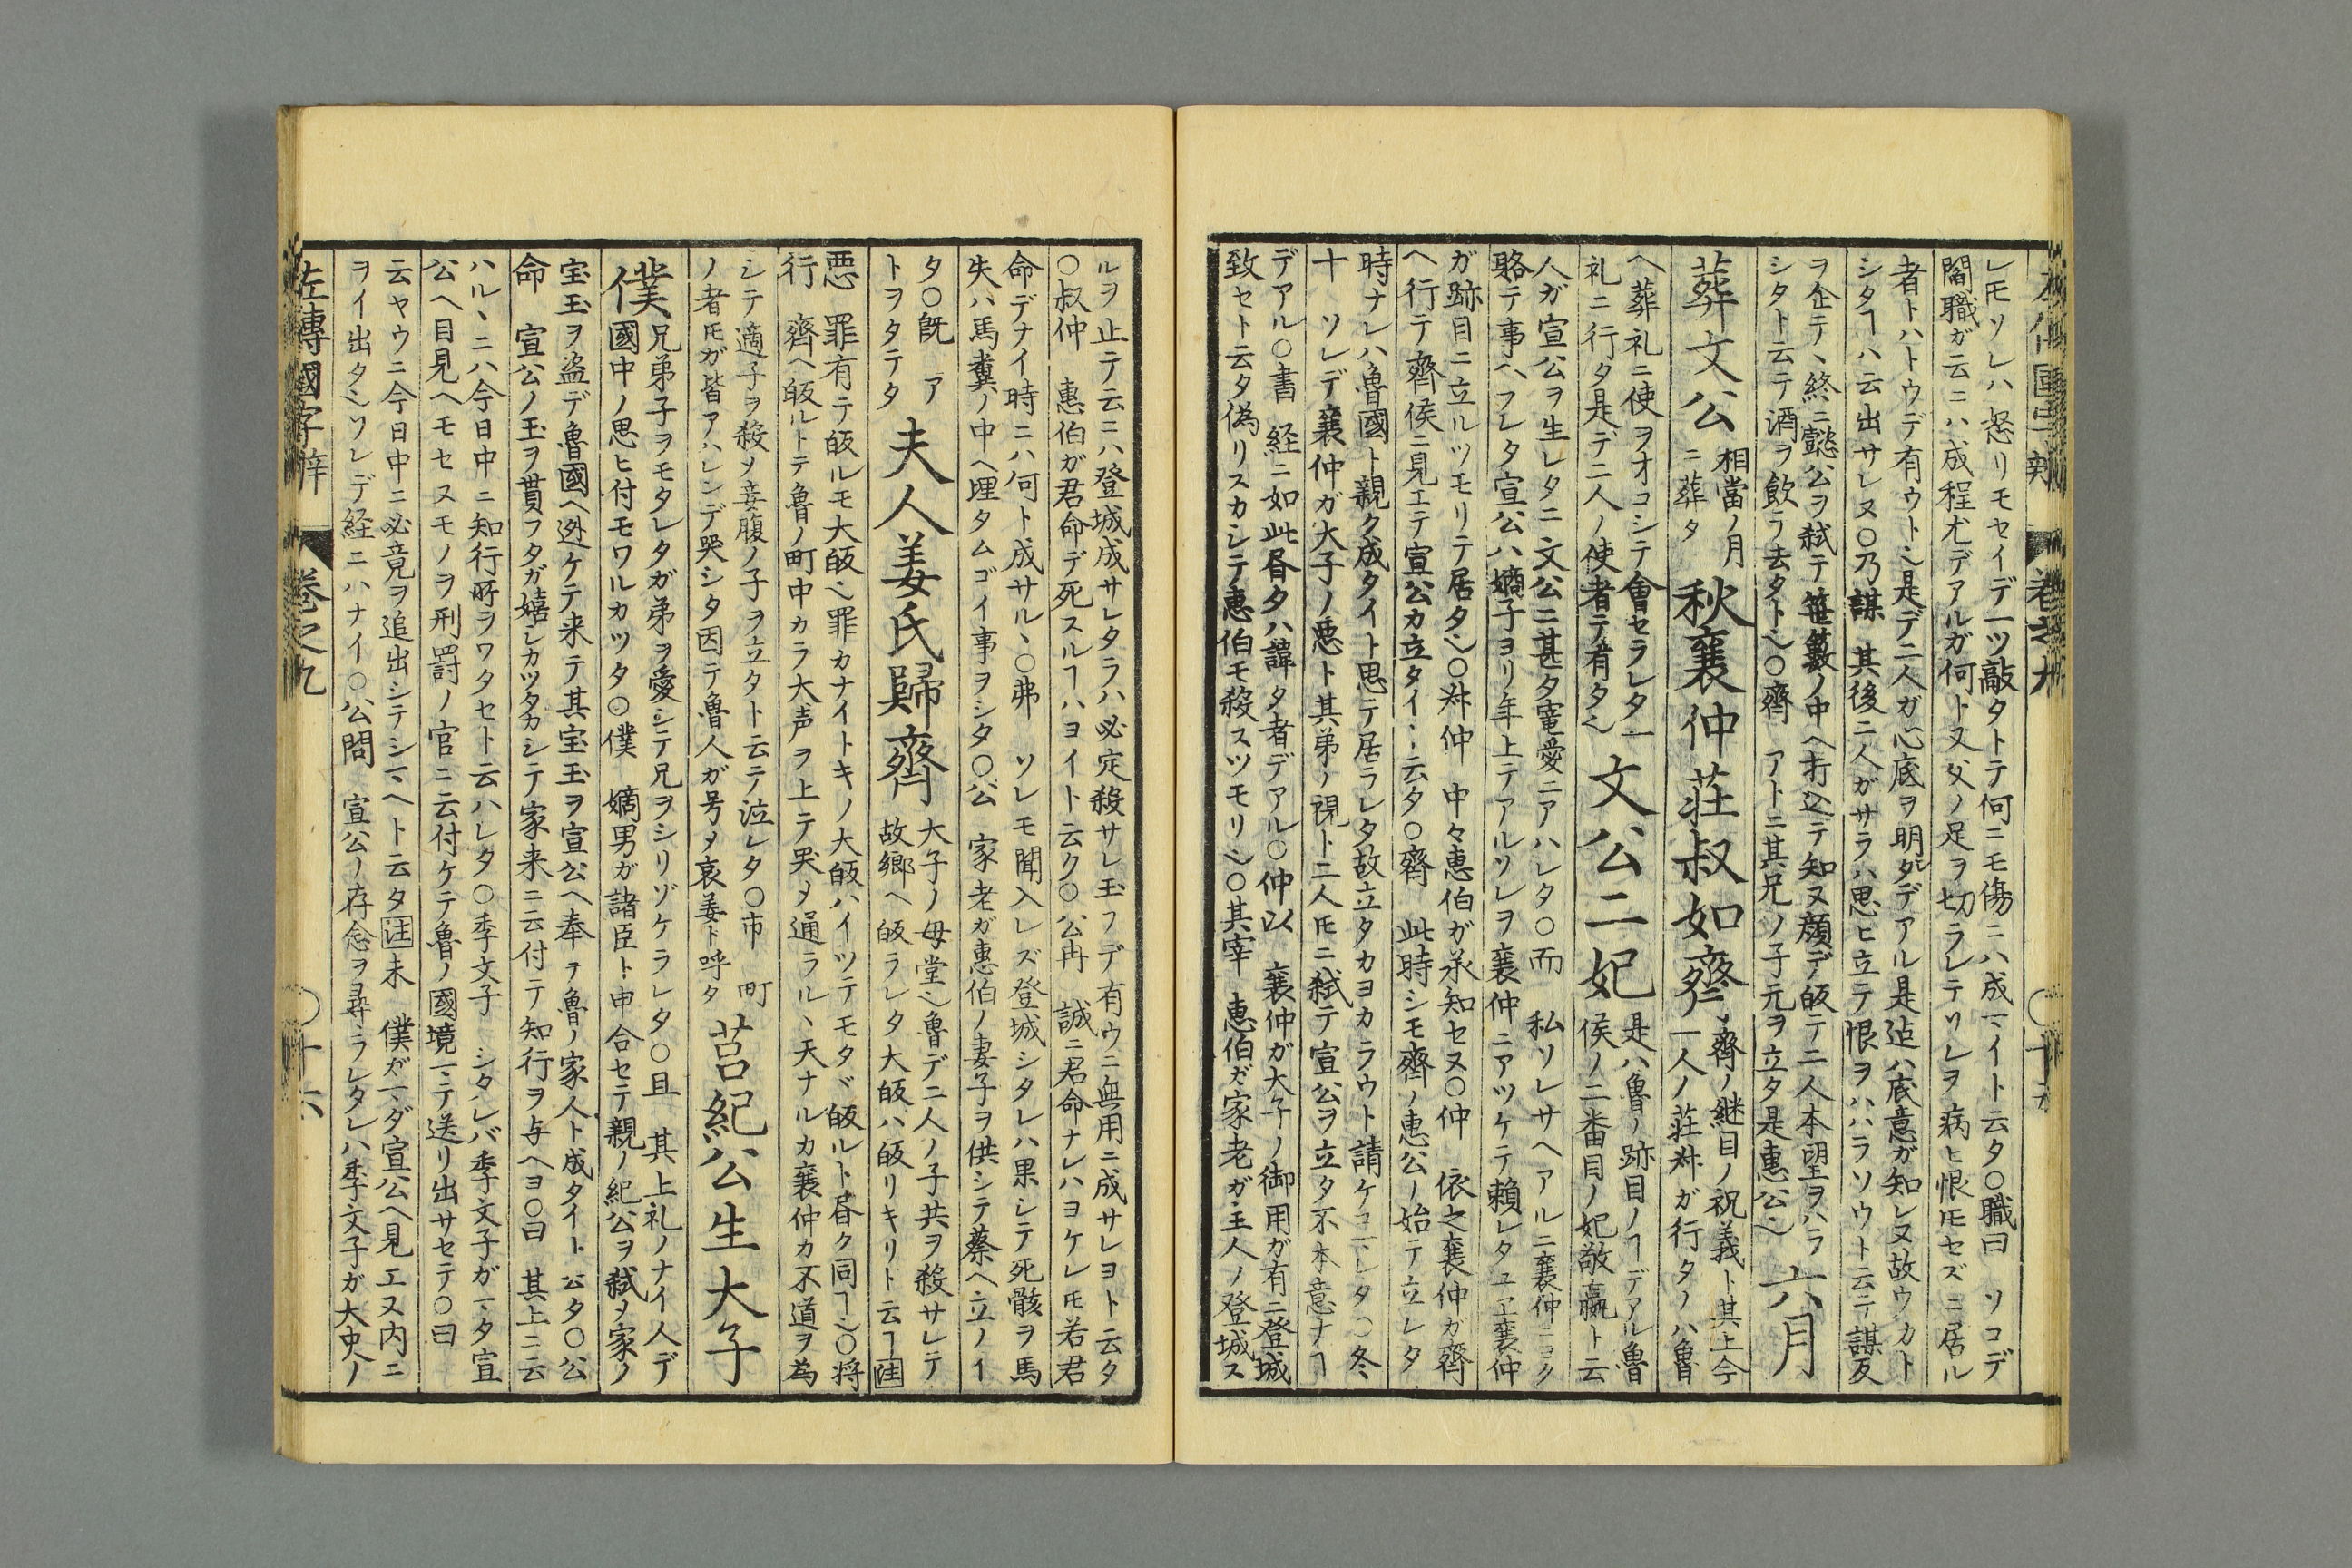 レ𪜈ソレハ怒リモセイデ一ツ敲タトテ何ニモ傷ニハ成マイト云タ〇職曰 ソコデ
閻職ガ云ニハ成程尤デアルガ何ト又父ノ足ヲ切ラレテソレヲ病ヒ恨𪜈セズニ居ル
者トハトウデ有ウトヘ是デ二人ガ心底ヲ明タデアル是迠ハ底意ガ知レヌ故ウカト
シタヿハ云出サレヌ〇乃謀 其後二人ガサラハ思ヒ立テ恨ヲハハラソウト云テ謀反
ヲ企テ、終ニ懿公ヲ弑テ笹藪ノ中ヘ打込テ知ヌ顔デ皈テ二人本望ヲハラ
シタト云テ酒ヲ飲ラ去タトヘ〇齊 アトニ其兄ノ子元ヲ立タ是惠公ヘ
六月
葬文公
相當ノ月
ニ葬タ
秋襄仲莊叔如齊
齊ノ継目ノ祝義ト其上今
一人ノ莊叔ガ行タノハ魯
ヘ葬礼ニ使ヲオコシテ會セラレタ
礼ニ行タ是デ二人ノ使者テ有タヘ
文公二妃
是ハ魯ノ跡目ノヿデアル魯
侯ノ二番目ノ妃敬嬴ト云
人ガ宣公ヲ生レタニ文公ニ甚タ寵愛ニアハレタ〇而 私ソレサヘアルニ襄仲ニヨク
賂テ事ヘフレタ宣公ハ嫡子ヨリ年上テアルソレヲ襄仲ニアツケテ頼レタユヱ襄仲
ガ跡目ニ立ルツモリテ居タヘ〇叔仲 中々惠伯ガ承知セヌ〇仲 依之襄仲カ齊
ヘ行テ齊侯ニ見エテ宣公カ立タイト云タ〇齊 此時シモ齊ノ惠公ノ始テ立レタ
時ナレハ魯國ト親ク成タイト思テ居ラレタ故立タカヨカラウト請ケコマレタ〇冬
十 ソレデ襄仲ガ大子ノ惡ト其弟ノ視ト二人𪜈ニ弑テ宣公ヲ立タ不本意ナヿ
デアル〇書 経ニ如此昏タハ諱タ者デアル〇仲以 襄仲ガ大子ノ御用ガ有ニ登城
致セト云タ偽リスカシテ惠伯モ殺スツモリヘ〇其宰 惠伯ガ家老ガ主人ノ登城ス
ルヲ止テ云ニハ登城成サレタラハ必定殺サレ玉フデ有ウニ無用ニ成サレヨト云タ
〇叔仲 惠伯ガ君命デ死スルヿハヨイト云ク〇公冉 誠ニ君命ナレハヨケレ𪜈若君
命デナイ時ニハ何ト成サル、〇弗 ソレモ聞入レズ登城シタレハ果シテ死骸ヲ馬
失ハ馬糞ノ中ヘ埋タムゴイ事ヲシタ〇公 家老ガ惠伯ノ妻子ヲ供シテ蔡ヘ立ノイ
タ〇既 ア
トヲタテタ
夫人姜氏歸齊
大子ノ母堂ヘ魯デ二人ノ子共ヲ殺サレテ
故鄉ヘ皈ラレタ大皈ハ皈リキリト云ヿ注
惡 罪有テ皈ルモ大皈ヘ罪カナイトキノ大皈ハイツテモタヾ皈ルト昏ク同ヿヘ〇将
行 齊ヘ皈ルトテ魯ノ町中カラ大声ヲ上テ哭メ通ラル、天ナルカ襄仲カ不道ヲ為
シテ適子ヲ殺メ妾腹ノ子ヲ立タト云テ泣レタ〇市 町
ノ者𪜈ガ皆アハレンデ哭シタ因テ魯人ガ号メ哀姜ト呼タ
莒紀公生大子
僕
兄弟子ヲモタレタガ弟ヲ愛シテ兄ヲシリゾケラレタ〇且 其上礼ノナイ人デ
國中ノ思ヒ付モワルカツタ〇僕 嫡男ガ諸臣ト申合セテ親ノ紀公ヲ弑メ家ノ
宝玉ヲ盗デ魯國ヘ迯ケテ来テ其宝玉ヲ宣公ヘ奉テ魯ノ家人ト成タイト云タ〇公
命 宣公ノ玉ヲ貰フタガ嬉レカツタカシテ家来ニ云付テ知行ヲ与ヘヨ〇曰 其上ニ云
ハル、ニハ今日中ニ知行所ヲワタセト云ハレタ〇季文子 シタレバ季文子ガマタ宣
公ヘ目見ヘモセヌモノヲ刑罰ノ官ニ云付ケテ魯ノ國境マテ送リ出サセテ〇曰
云ヤウニ今日中ニ必竟ヲ追出シテシマヘト云タ注未 僕ガマダ宣公ヘ見エヌ内ニ
ヲイ出タヘソレデ経ニハナイ〇公問 宣公ノ存念ヲ尋ラレタレハ季文子ガ大史ノ
左傳國字辯 卷之九 〇十六